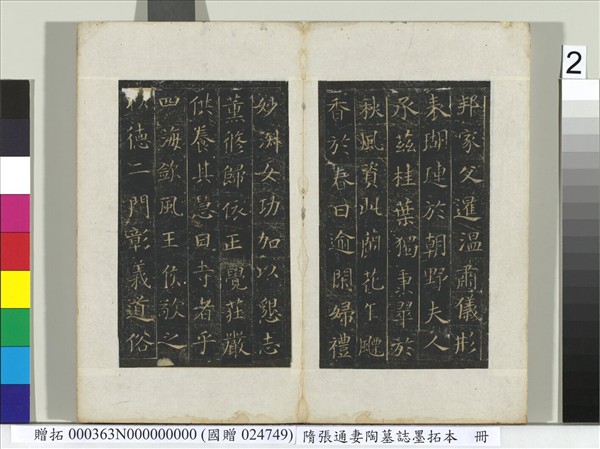 邦家父暹溫肅儀形
表瑚璉於朝野夫人
承茲桂葉獨秉翠於
秋風資此蘭花乍飈
香於春日逾閑婦禮
妙澣女功加以懇志
薰脩歸依正覺莊嚴
供養其慧日寺者乎
四海欽風王侯歌之
德二門彰義道俗
2
贈拓 000363N000000000 (國贈 024749) 隋張通妻陶墓誌墨拓本 冊